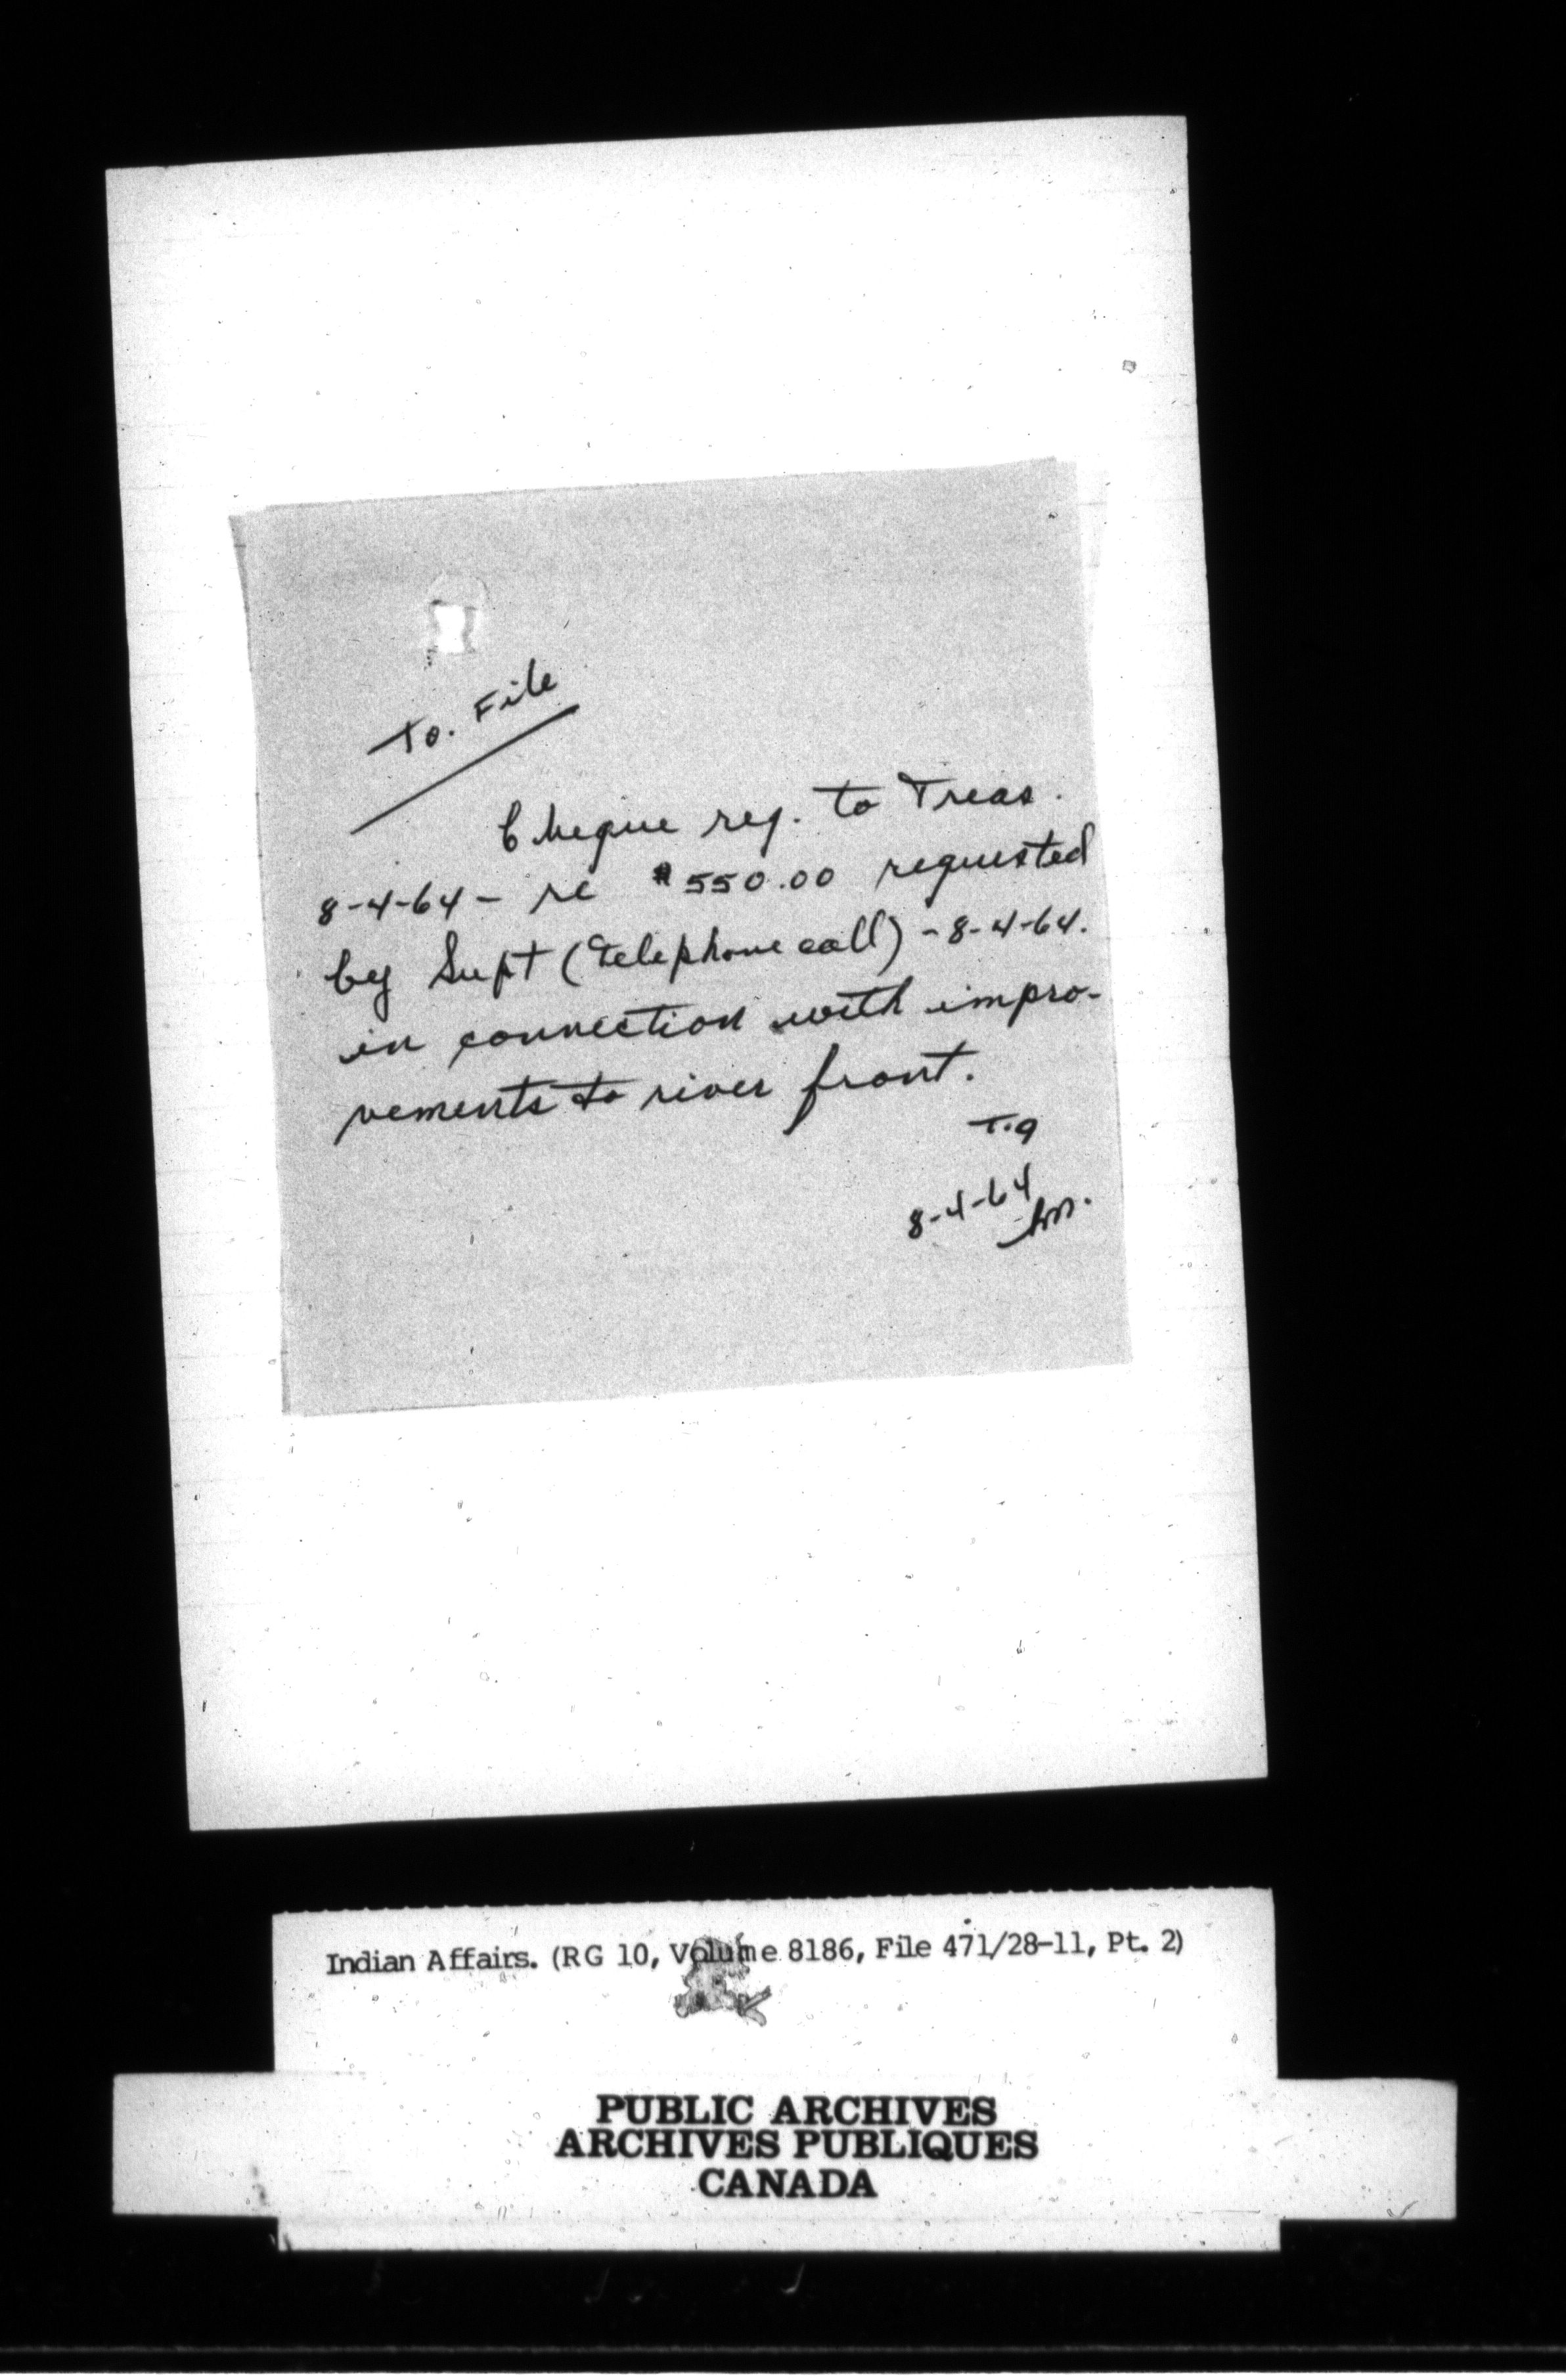 To. File
Cheque req. to Treas.
8-4-64 - re $550.00 requested
by Supt (Telephone call) - 8-4-64.
in connection with impro-
vements to river front.
T.9
8-4-64
Indian Affairs. (RG 10, Volume 8186, File 471/28-11, Pt. 2)
PUBLIC ARCHIVES
ARCHIVES PUBLIQUES
CANADA